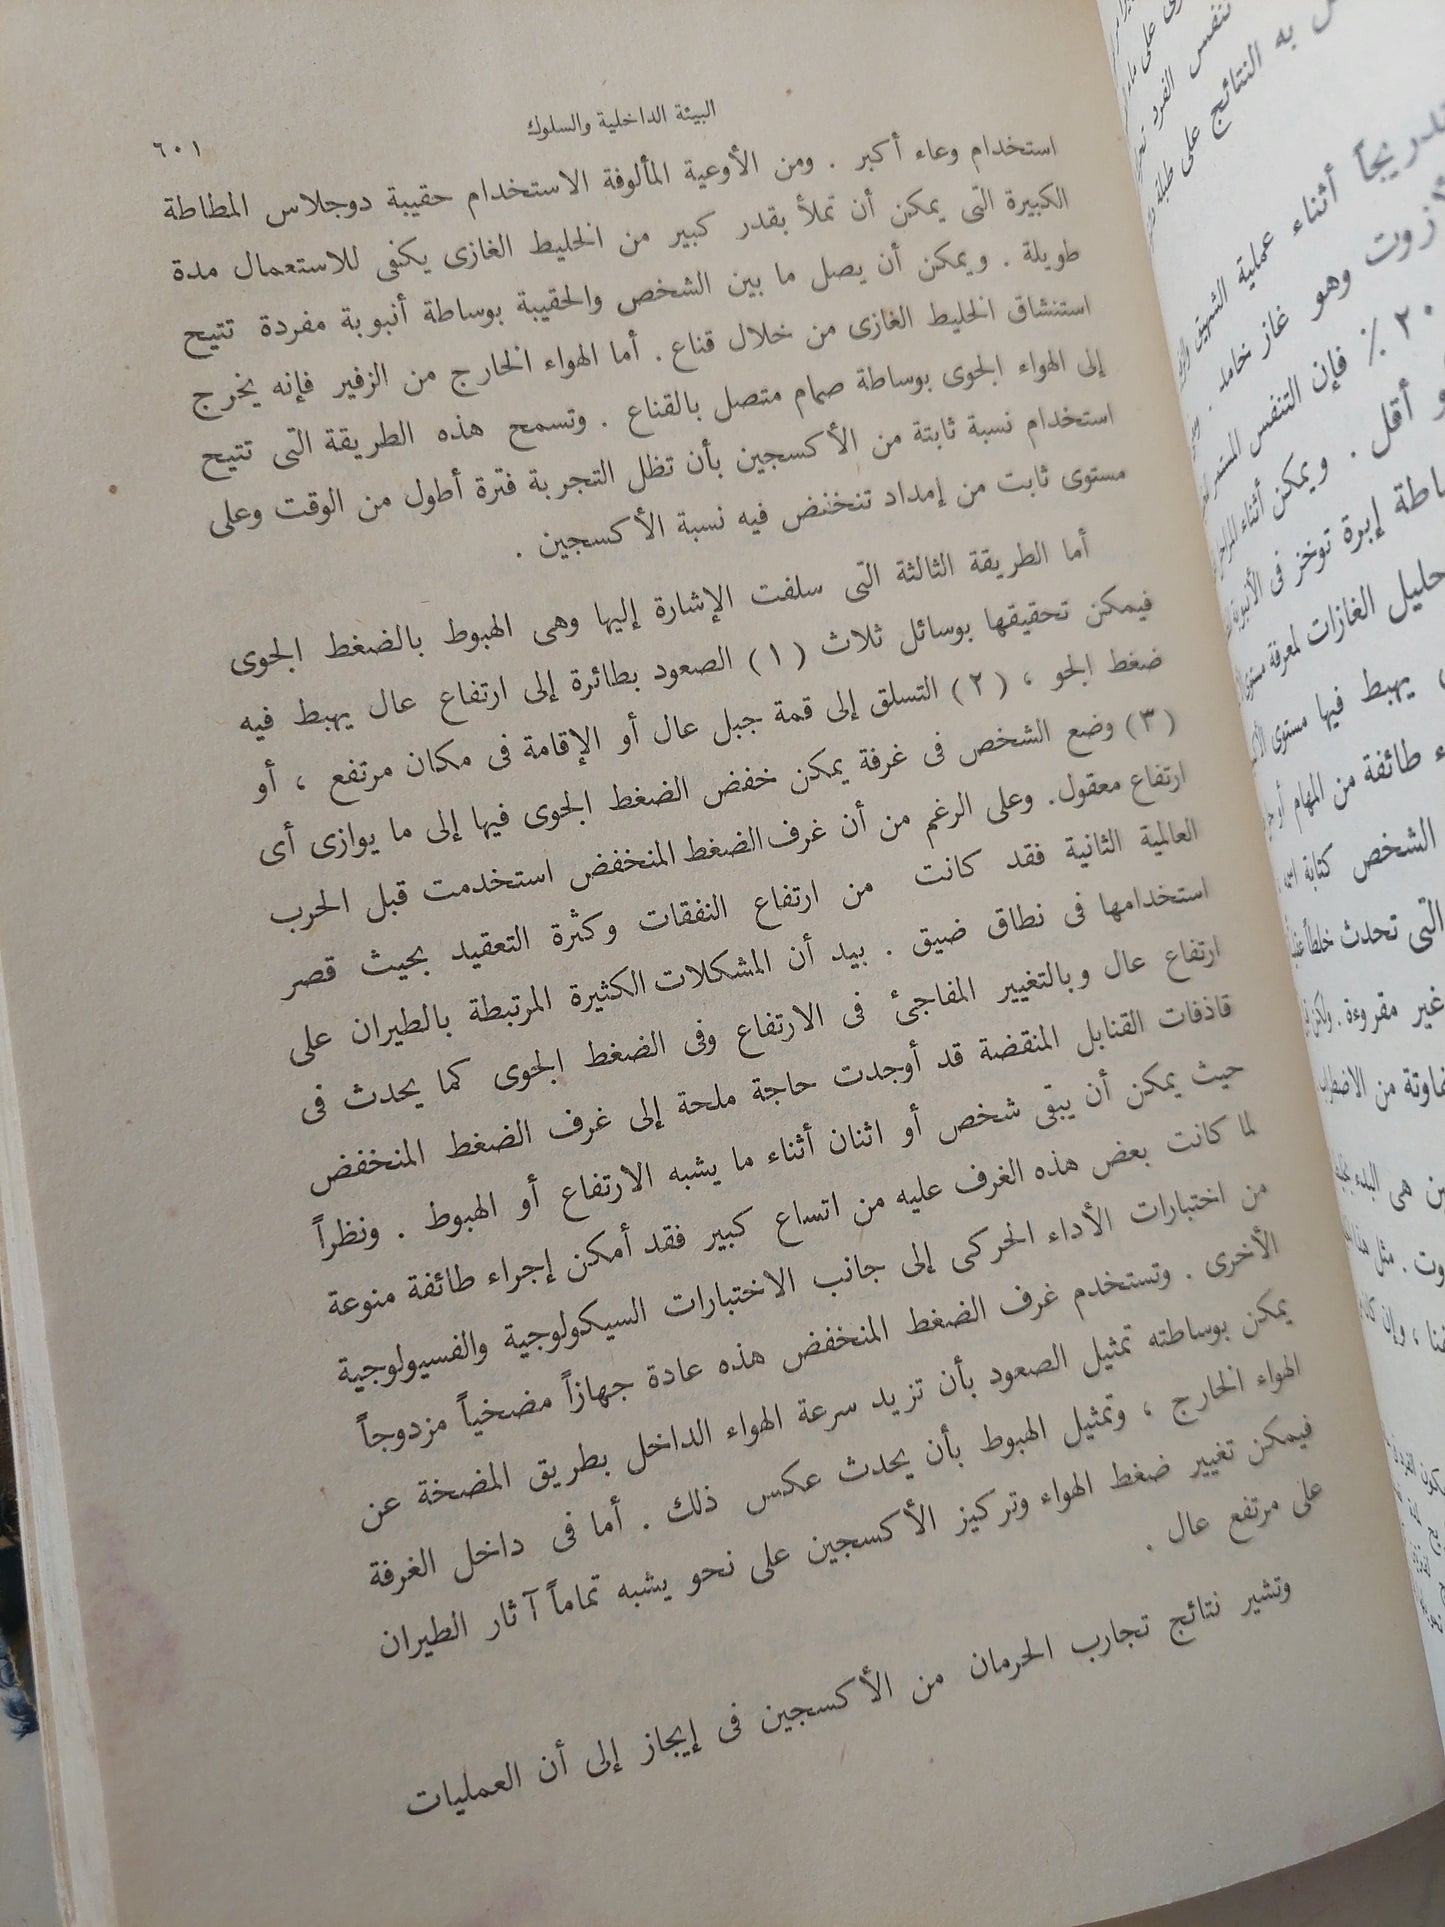 البيئة الداخلية والسلوك
٦٠١
استخدام وعاء أكبر . ومن الأوعية المألوفة الاستخدام حقيبة دوجلاس المطاطة
الكبيرة التى يمكن أن تملأ بقدر كبير من الخليط الغازى يكفى للاستعمال مدة
طويلة . ويمكن أن يصل ما بين الشخص والحقيبة بوساطة أنبوبة مفردة تتيح
استنشاق الخليط الغازى من خلال قناع . أما الهواء الخارج من الزفير فإنه يخرج
إلى الهواء الجوى بوساطة صمام متصل بالقناع . وتسمح هذه الطريقة التى تتيح
استخدام نسبة ثابتة من الأكسجين بأن تظل التجربة فترة أطول من الوقت وعلى
مستوى ثابت من إمداد تنخنض فيه نسبة الأكسجين .
أما الطريقة الثالثة التى سلفت الإشارة إليها وهى الهبوط بالضغط الجوى
فيمكن تحقيقها بوسائل ثلاث (١) الصعود بطائرة إلى ارتفاع عال يهبط فيه
ضغط الجو ، (٢) التسلق إلى قمة جبل عال أو الإقامة فى مكان مرتفع ، أو
(٣) وضع الشخص فى غرفة يمكن خفض الضغط الجوى فيها إلى ما يوازى أى
ارتفاع معقول. وعلى الرغم من أن غرف الضغط المنخفض استخدمت قبل الحرب
العالمية الثانية فقد كانت من ارتفاع النفقات وكثرة التعقيد بحيث قصر
استخدامها فى نطاق ضيق . بيد أن المشكلات الكثيرة المرتبطة بالطيران على
ارتفاع عال وبالتغيير المفاجئ فى الارتفاع وفى الضغط الجوى كما يحدث فى
قاذفات القنابل المنقضة قد أوجدت حاجة ملحة إلى غرف الضغط المنخفض
حيث يمكن أن يبقى شخص أو اثنان أثناء ما يشبه الارتفاع أو الهبوط . ونظراً
لما كانت بعض هذه الغرف عليه من اتساع كبير فقد أمكن إجراء طائفة منوعة
من اختبارات الأداء الحركى إلى جانب الاختبارات السيكولوجية والفسيولوجية
الأخرى . وتستخدم غرف الضغط المنخفض هذه عادة جهازاً مضخياً مزدوجاً
يمكن بوساطته تمثيل الصعود بأن تزيد سرعة الهواء الداخل بطريق المضخة عن
الهواء الخارج ، وتمثيل الهبوط بأن يحدث عكس ذلك . أما فى داخل الغرفة
فيمكن تغيير ضغط الهواء وتركيز الأكسجين على نحو يشبه تماماً آثار الطيران
على مرتفع عال .
وتشير نتائج تجارب الحرمان من الأكسجين فى إيجاز إلى أن العمليات
به النتائج على
أثناء عملية الشهيق
وهو غاز خامل .
٢٠ ٪ فإن التنفس المستمر
أقل . ويمكن أثناء
إبرة توخز فى
الغازات لمعرفة
يهبط فيها مستوى
طائفة من المهام
الشخص كتابة
التى تحدث خلطاً
غير مقروءة . ولكن
من
هى
. مثل هذا
، وإن